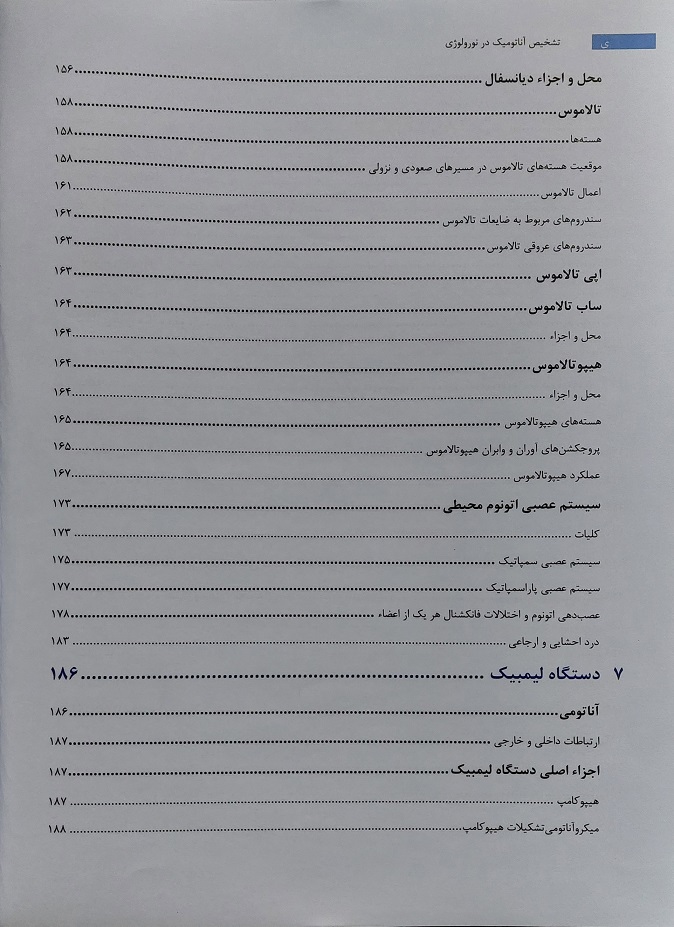 ی تشخیص آناتومیک در نورولوژی
محل و اجزاء دیانسفال ........ ۱۵۶
تالاموس ........ ۱۵۸
هسته‌ها ........ ۱۵۸
موقعیت هسته‌های تالاموس در مسیرهای صعودی و نزولی ........ ۱۵۸
اعمال تالاموس ........ ۱۶۱
سندروم‌های مربوط به ضایعات تالاموس ........ ۱۶۲
سندروم‌های عروقی تالاموس ........ ۱۶۳
اپی تالاموس ........ ۱۶۳
ساب تالاموس ........ ۱۶۴
محل و اجزاء ........ ۱۶۴
هیپوتالاموس ........ ۱۶۴
محل و اجزاء ........ ۱۶۴
هسته‌های هیپوتالاموس ........ ۱۶۵
پروجکشن‌های آوران و وابران هیپوتالاموس ........ ۱۶۵
عملکرد هیپوتالاموس ........ ۱۶۷
سیستم عصبی اتونوم محیطی ........ ۱۷۳
کلیات ........ ۱۷۳
سیستم عصبی سمپاتیک ........ ۱۷۵
سیستم عصبی پاراسمپاتیک ........ ۱۷۷
عصب‌دهی اتونوم و اختلالات فانکشنال هر یک از اعضاء ........ ۱۷۸
درد احشایی و ارجاعی ........ ۱۸۳
۷ دستگاه لیمبیک ........ ۱۸۶
آناتومی ........ ۱۸۶
ارتباطات داخلی و خارجی ........ ۱۸۷
اجزاء اصلی دستگاه لیمبیک ........ ۱۸۷
هیپوکامپ ........ ۱۸۷
میکروآناتومی تشکیلات هیپوکامپ ........ ۱۸۸